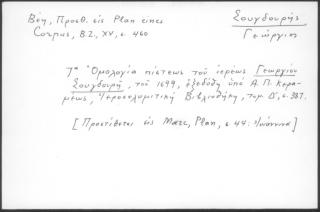 Βέη, Προσθ. εἰς Plan eines
Corpus, B.Z., XV, σ. 460
Σουγδουρῆς
Γεώργιος
Ἡ Ὁμολογία πίστεως τοῦ ἱερέως Γεωργίου
Σουγδουρῆ, τοῦ 1699, ἐξεδόθη ὑπὸ Α. Π. Κερα-
μέως, Ἱεροσολυμιτικὴ Βιβλιοθήκη, τομ. Δ', σ. 387.
[Προστίθεται εἰς Marc, Plan, σ. 44: Ἰωάννινα]